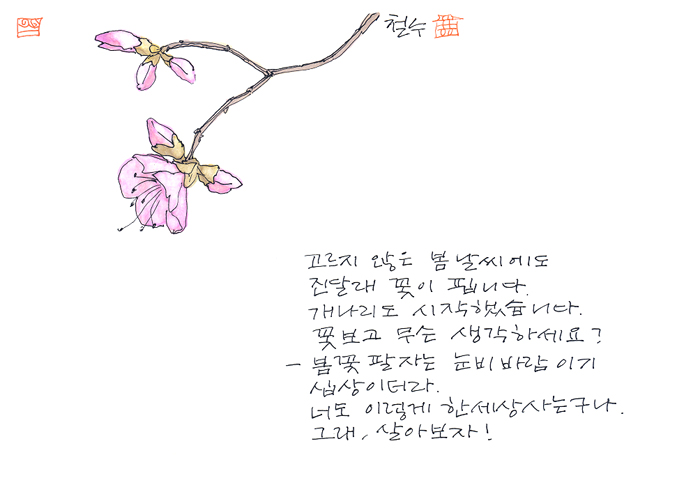 철수
고르지 않은 봄 날씨에도
진달래 꽃이 핍니다.
개나리도 시작했습니다.
꽃보고 무슨 생각하세요?
- 봄꽃 팔자는 눈비바람 이기
십상이더라.
너도 이렇게 한세상사는구나.
그래, 살아보자!